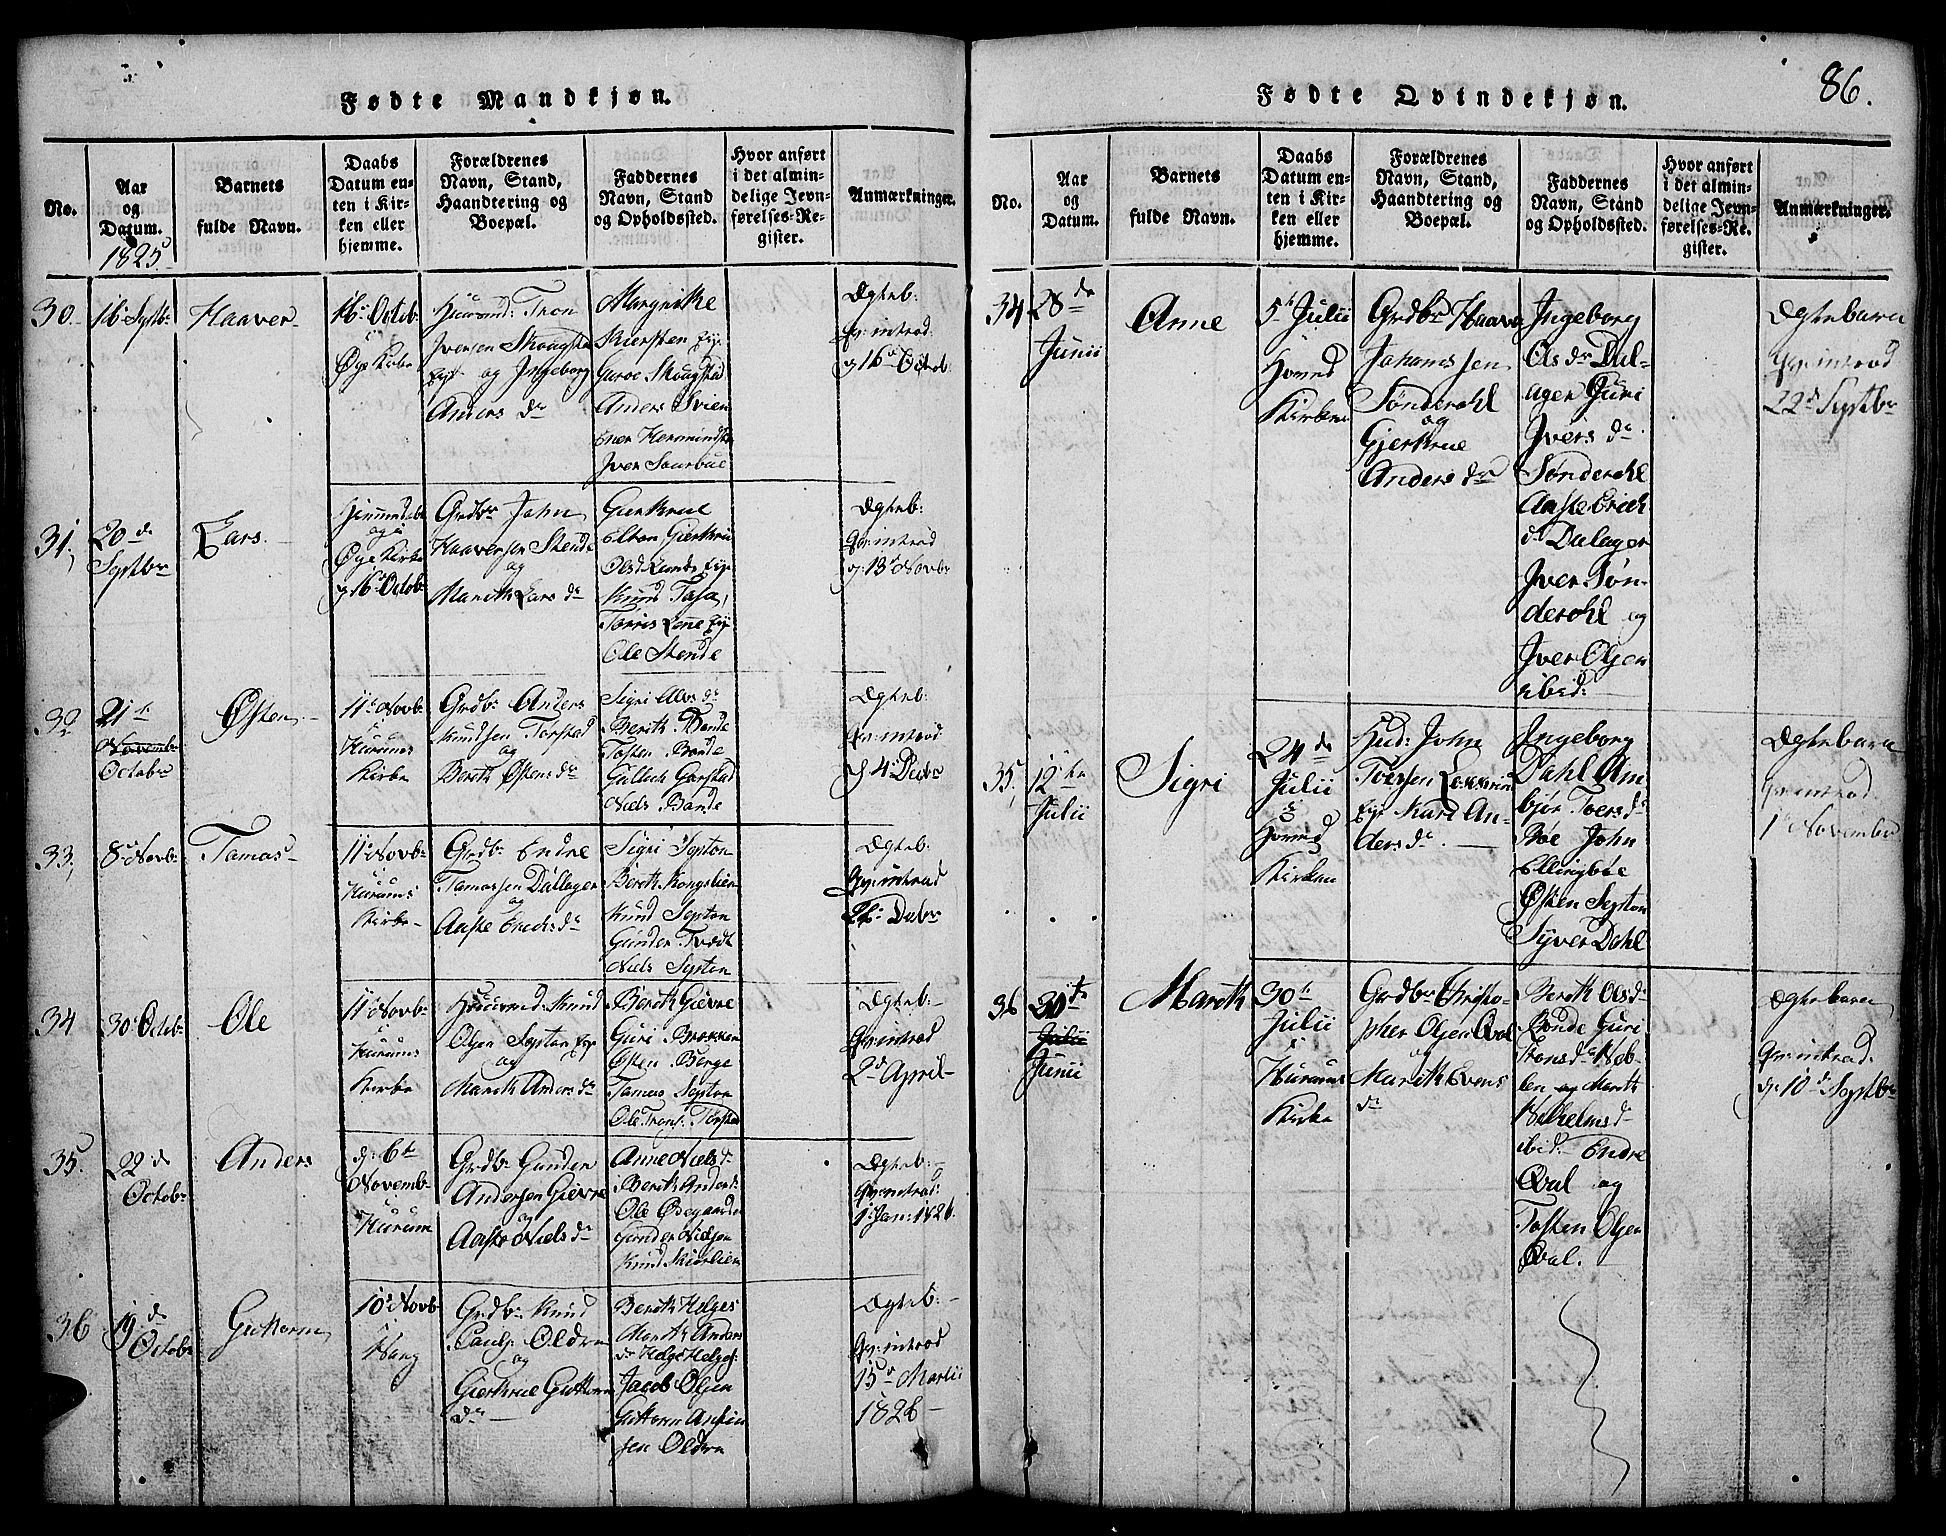 Fødte Mandkjøn.
No.
Aar
og
Datum.
1825
Barnets
fulde Navn.
Daabs
Datum en-
ten i Kir-
ken eller
hjemme.
Forældrenes
Navn, Stand,
Haandtering og
Boepæl.
Faddernes
Navn, Stand
og Opholdssted.
Hvor anført
i det almin-
delige Jevn-
førelses-Re-
gister.
Anmærkninger.
30.
16 Septbr
Haaver
16 Octob
Øye Kirke
Huusmd: Tron
Iversen Skougstad
og Ingeborg
Anders dr
Margrithe
Skiersten
Guroe Skougstad
Anders Svien
Iver Saurbue
Ægteb:
introd
16 Octob:
31,
20de
Septbr
Lars.
og i
Øye Kirke
16 Octobr
Grdbr John
Haaversen Stende
og
Marith Lars dr
Giertrue
Knud
Torris
Ole Stende
Ægteb:
introd
13 Novbr
32
21de
Novembr
Octobr
Østen
11 Novbr
i
Hurums
Kirke
Grdbr Anders
Knudsen Torstad
og
Berith Østensdr
Sigri Alvs dr
Berith Bonde
Tosten Bonde
Gullich Garstad
Niels Bonde
Ægteb:
introd
4 Decbr
33,
8 Novbr
Tamas
11 Novbr
i
Hurums
Kirke
Grdbr Endre
Tamassen Dallager
og
Aaste
Sigri Sypton
Berith Kongslien
Knud Sypton
Gunder Tvedt
Niels Sypton
Ægteb:
introd
26 Decbr
34
30 Octobr
Ole
11 Novbr
i
Hurums
Kirke
Huusmd: Knud
Olsen Sypton
og
Marith Anders dr
Berith Gievre
Guri Brekken
Østen Berge
Tamas Sypton
Ole Trons: Torstad
Ægteb:
introd
2d April
35.
22de
Octobr
Anders
d: 6te
Novembr
Hurum
Grdbr Gunder
Andersen Gievre
og
Aaste Niels dr
Anne Niels dr
Berith Anders:
Ole Ødegaarden
Gunder Nielsen
Knud
Ægteb:
introd:
1 Jan: 1826.
36
19de
Octobr
Guttorm
10 Novbr
i
Vang
Grdbr Knud
Pauls: Oldre
og
Giertrue Guttorm
dr
Berith Helges
Marith Anders
dr Helge Helges:
Jacob Olsen
Guttorm
sen Oldre
Ægteb:
introd
15 Martii
1826
86.
Fødte Qvindekjøn.
No.
Aar
og
Datum.
Barnets
fulde Navn.
Daabs
Datum en-
ten i Kir-
ken eller
hjemme.
Forældrenes
Navn, Stand,
Haandtering og
Boepæl.
Faddernes
Navn, Stand
og Opholdssted.
Hvor anført
i det almin-
delige Jevn-
førelses-Re-
gister.
Anmærkninger.
34
28de
Junii
Anne
5 Julii
Kirken
Grdbr Haaver
Johannssen
Sønderohl
og
Gjertrue
Anders dr
Ingeborg
Ols dr Dal-
ager Guri
Ivers dr
Sønderohl
Aaste Erich
dr Dalager
Iver Søn-
derohl og
Iver Olsen
ibid:
Ægtebarn
introd
22d Septbr
35,
12te
Julii
Sigri
24de
Julii
i
Kirken
Hud: John
Iversen
Kari An-
ders dr
Ingeborg
Dahl Am-
bjør Ivers dr
Bøe John
Ellingbøe
Østen Sypton
Syver Dahl
Ægtebarn
introd
1 November
36
30te
Julii
Junii
Marith
30t
Julii
i
Hurums
Kirke
Grdbr Christo-
pher Olsen Qval
og
Marith Evens
dr
Berith Olsdr
Bonde Guri
Tronsdr
og Marith
Vilhelmsdr
ibid: Endre
Qval og
Tosten Olsen
Qval.
Ægtebarn
introd
d: 10de Septbr